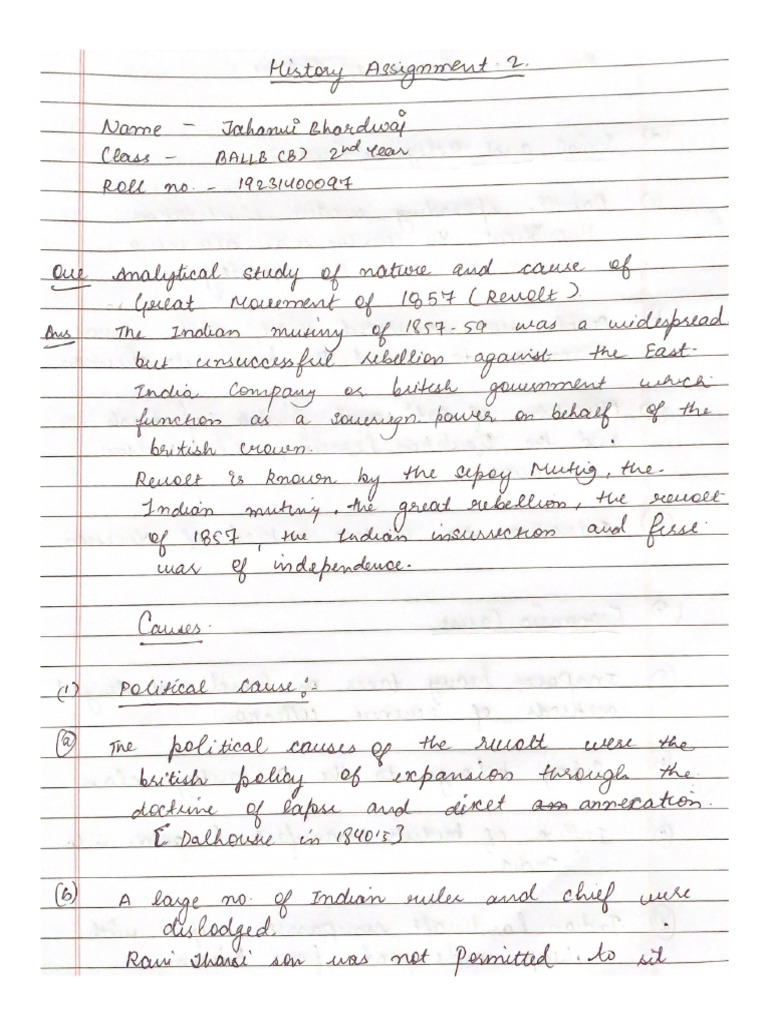 History Assignment 2.
Name - Jahanvi Bhardwaj
Class - BALLB (B) 2nd Year
Roll no. - 19231400097
Que Analytical study of nature and cause of
Great Movement of 1857 (Revolt).
Ans The Indian mutiny of 1857-59 was a widespread
but unsuccessful rebellion against the East
India Company or british government which
function as a sovereign power on behalf of the
british crown.
Revolt is known by the sepoy Mutiy, the
Indian mutiny, the great rebellion, the revolt
of 1857, the Indian insurrection and first
war of independence.
Causes.
(1) Political cause :-
(a) The political causes of the revolt were the
british policy of expansion through the
doctrine of lapse and diket annexation.
[Dalhousie in 1840's]
(b) A large no. of Indian ruler and chief were
dislodged.
Rani Jhansi son was not permitted to sit